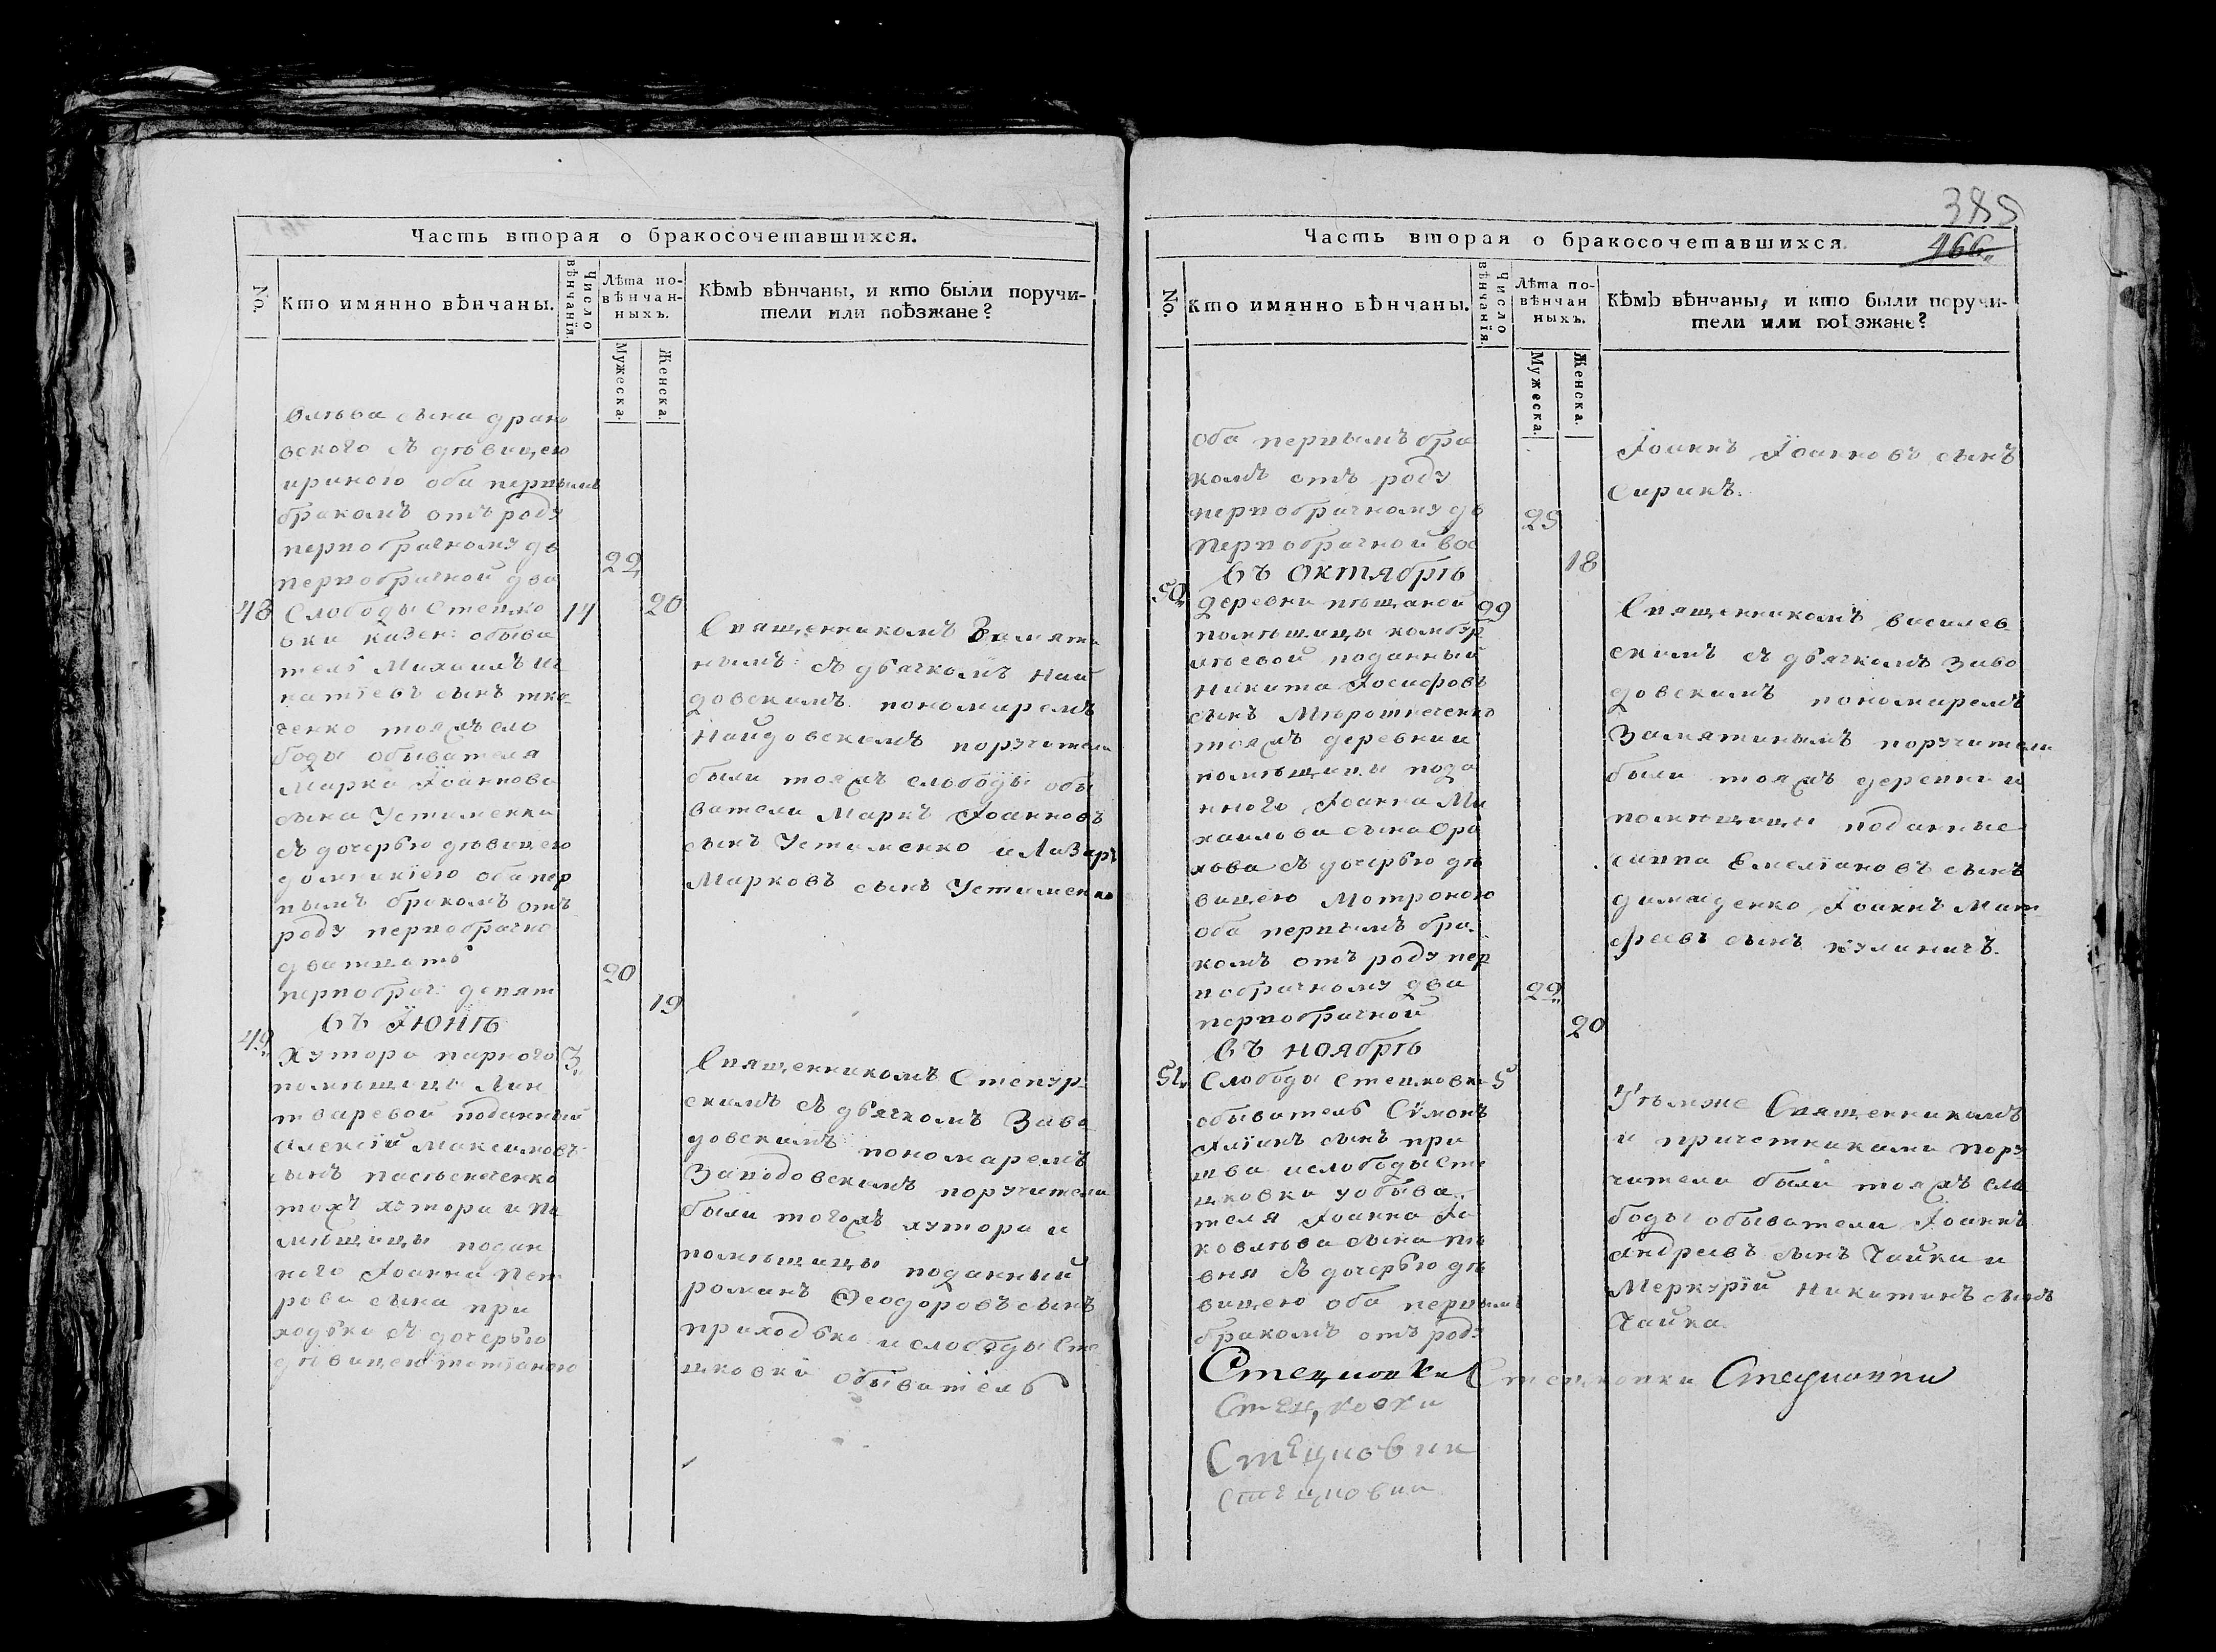 Часть вторая о бракосочетавшихся.
No.
Кто имянно вѣнчаны.
Число вѣнчанїя.
Лѣта по-
вѣнчан-
ныхъ.
Мужеска.
Женска.
Кѣмъ вѣнчаны, и кто были поручи-
тели или поѣзжане?
сына
вского съ дѣвицею
ириною оба первымъ
бракомъ отъ роду
первобрачному дв
22
первобрачной два
20
48 Слободы Стецко
14
вки казен: обыва
тель Михаилъ Иг
натїевъ сынъ тка
ченко тояжъ сло
боды обывателя
Марка Іоаннова
сына Устименка
съ дочерью дѣвицею
домникїею оба пер
вымъ бракомъ отъ
роду первобрачно
дватцать
20
первобрач: девят
19
Священникомъ Замяти
нымъ съ дьячкомъ Най
довскимъ пономаремъ
Найдовскимъ поручители
были тояжъ слободы обы
ватели Маркъ Іоанновъ
сынъ Устименко и Лазарь
Марковъ сынъ Устименко
въ Їюнѣ
49
3
Хутора парного
помѣщицы
поданный
Алексїй Максимовъ
сынъ
тохъ хутора и по
мѣщицы подан
ного Іоанна Пет
рова сына при
ходька съ дочерью
дѣвицею татїаною
Священникомъ
скимъ съ дьячкомъ Заво
довскимъ пономаремъ
Заводовскимъ поручители
были тогожъ хутора и
помѣщицы поданный
романъ Ѳеодоровъ сынъ
приходько и слободы Сте
цковки обыватель
385
466
Часть вторая о бракосочетавшихся.
No.
Кто имянно вѣнчаны.
Число вѣнчанїя.
Лѣта по-
вѣнчан
ныхъ.
Мужеска.
Женска.
Кѣмъ вѣнчаны, и кто были поручи-
тели или поѣзжане?
оба первымъ бра
комъ отъ роду
первобрачному дв
25
первобрачной вос
18
Іоаннъ Іоанновъ сынъ
Сирикъ.
въ октябрѣ
50
деревни пѣщаной
29
помѣщицы
поданный
Никита Іосифовъ
сынъ Мѣрошниченко
тояжъ деревни и
помѣщицы пода
нного Іоанна Ми
хаилова сына Оро
хова съ дочерью дѣ
вицею Мотроною
оба первымъ бра
комъ отъ роду пер
вобрачному два
22
первобрачной
20
Священникомъ василев
скимъ съ дьячкомъ Заво
довскимъ пономаремъ
Замятинымъ поручители
были тояжъ деревни и
помѣщицы поданные
Емелїановъ сынъ
Іоаннъ Мат
феевъ сынъ
въ ноябрѣ
51
5
Слободы Стецковки
обыватель Сѵмонъ
сынъ при
слободы Сте
цковки обыва
теля Іоанна Іа
ковлѣва сына Пѣ
вня съ дочерью дѣ
вицею оба первымъ
бракомъ отъ роду
Тѣмже Священникомъ
и причетниками пору
чители были тояжъ сло
боды обыватели Іоаннъ
Андреевъ сынъ Чайка и
Меркурїй Никитинъ сынъ
Чайка.
Стецковки Стецковки Стецковки
Стецковки
Стецковки
Стецковки